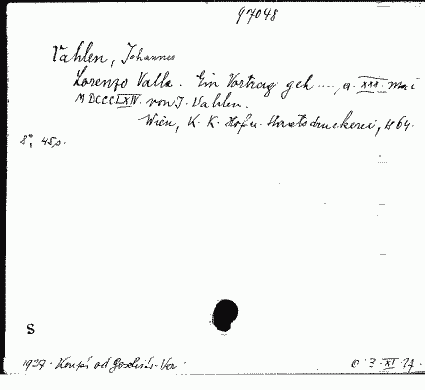 97048
Vahlen, Johannes
Lorenzo Valla. Ein Vortrag geh...., a. XXX. Mai
MDCCCLXIV. von J. Vahlen.
Wien, K. K. Hof u. Staatsdruckerei, 1864.
8°, 45 p.
S
1937. od
XI. 17.